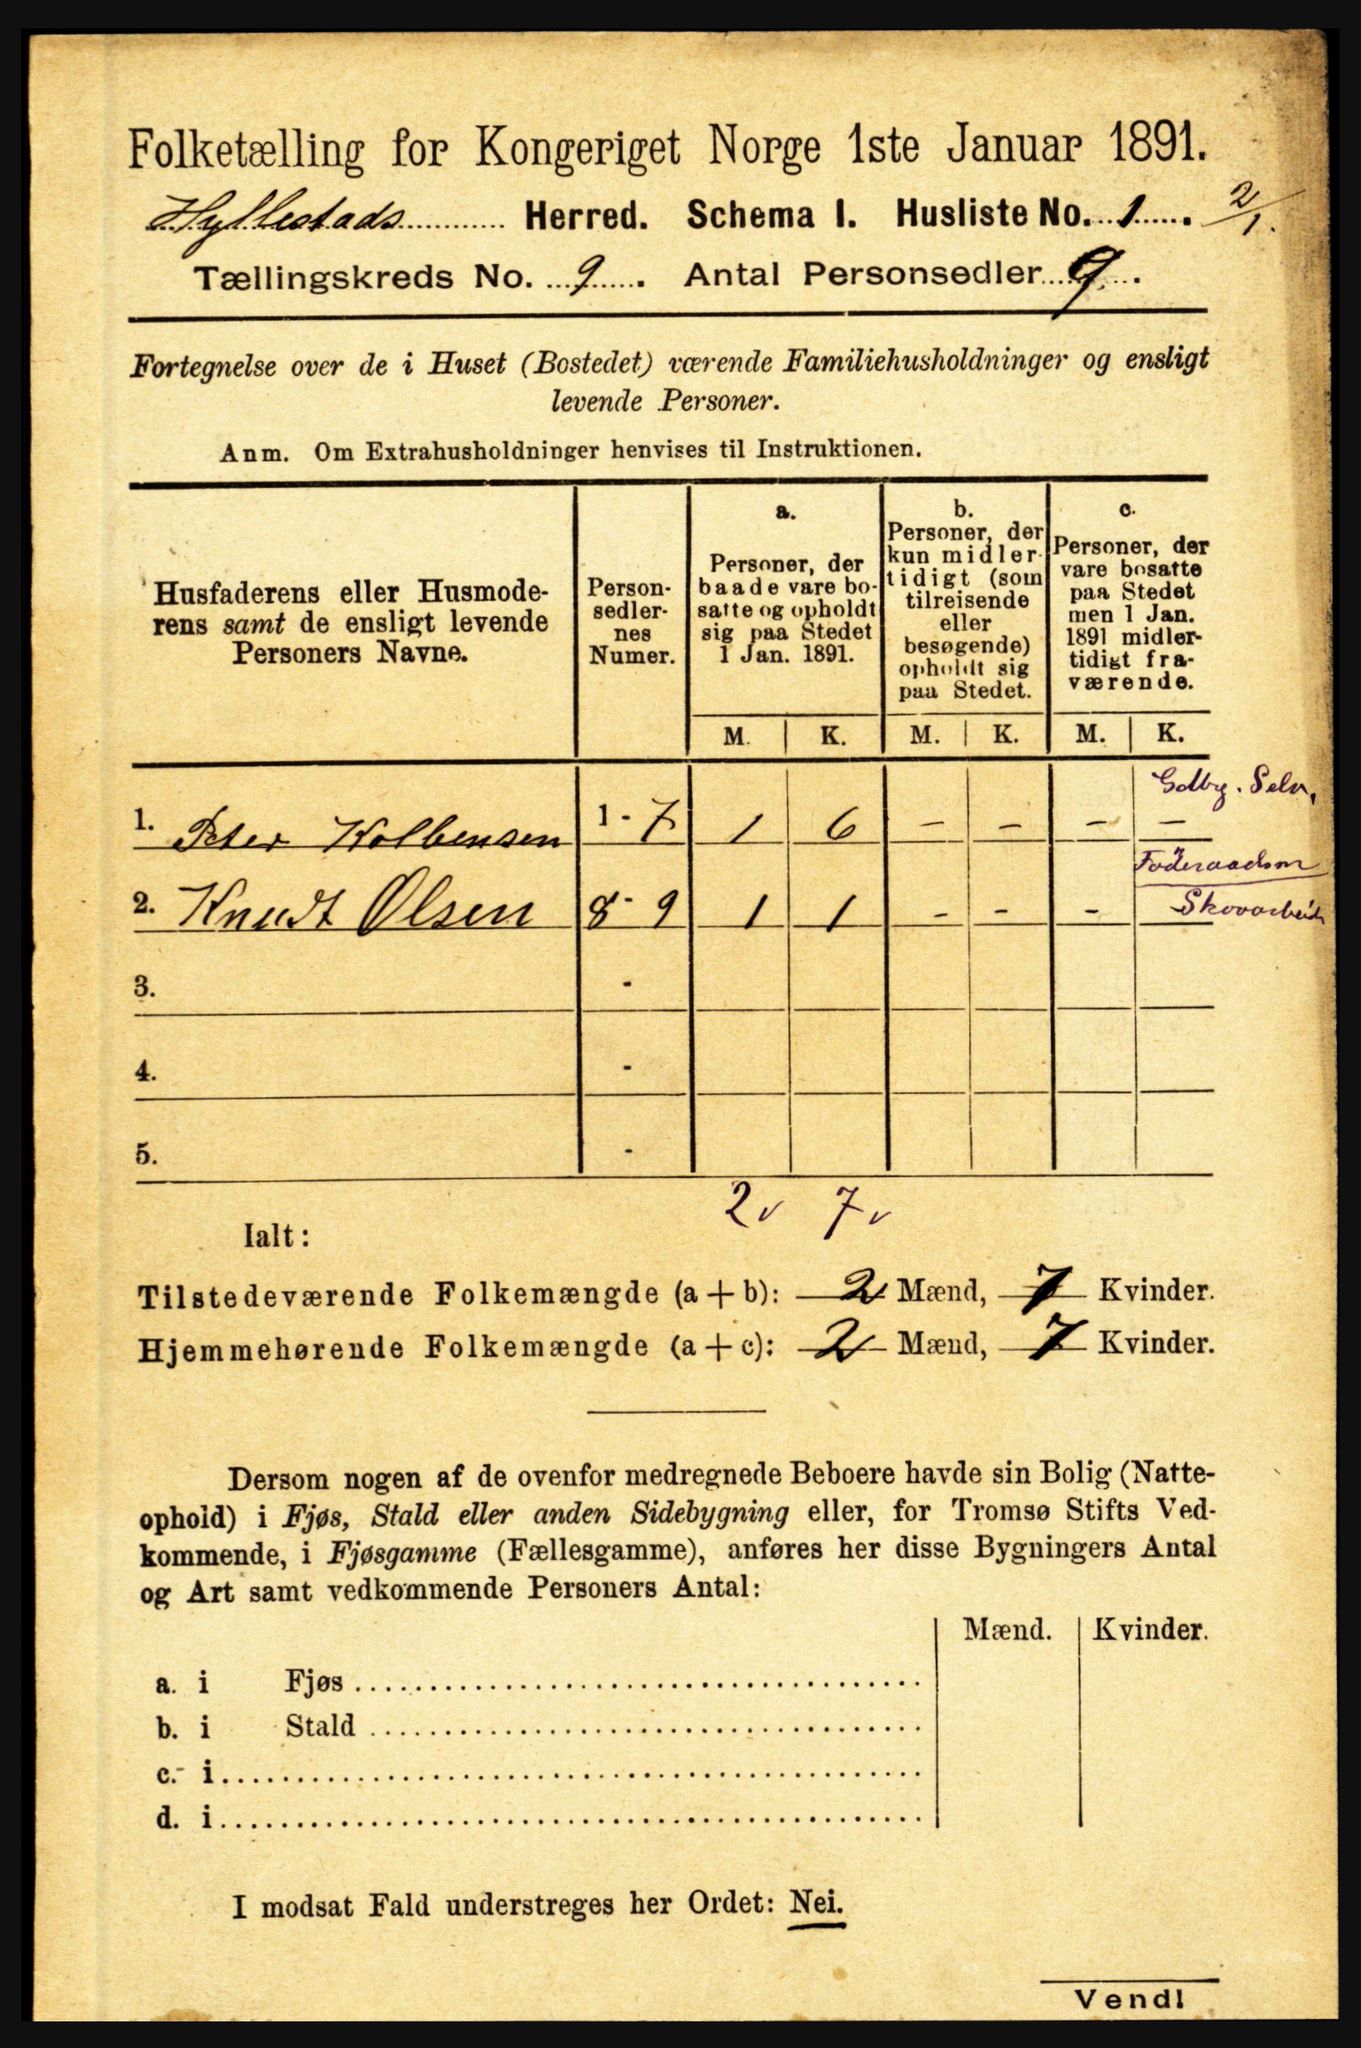 Folketælling for Kongeriget Norge 1ste Januar 1891.
Hyllestads Herred. Schema I. Husliste No. 1. 2/1.
Tællingskreds No. 9. Antal Personsedler 9.
Fortegnelse over de i Huset (Bostedet) værende Familiehusholdninger og ensligt
levende Personer.
Anm. Om Extrahusholdninger henvises til Instruktionen.
Husfaderens eller Husmode-
rens samt de ensligt levende
Personers Navne.
Person-
sedler-
nes
Numer.
a.
Personer, der
baade vare bo-
satte og opholdt
sig paa Stedet
1 Jan. 1891.
b.
Personer, der
kun midler-
tidigt (som
tilreisende
eller
besøgende)
opholdt sig
paa Stedet.
c.
Personer, der
vare bosatte
paa Stedet
men 1 Jan.
1891 midler-
tidigt fra-
værende.
M. K. M. K. M. K.
Gdbg. Selv.
1. Peter Kolbensen 1 - 7 1 6 - - - -
Föderaadsm
2. Knudt Olsen 8 - 9 1 1 - - - Skovarbeid
3. -
4. -
5. -
2 v 7 v
Ialt:
Tilstedeværende Folkemængde (a + b): 2 Mænd, 7 Kvinder.
Hjemmehørende Folkemængde (a + c): 2 Mænd, 7 Kvinder.
Dersom nogen af de ovenfor medregnede Beboere havde sin Bolig (Natte-
ophold) i Fjøs, Stald eller anden Sidebygning eller, for Tromsø Stifts Ved-
kommende, i Fjøsgamme (Fællesgamme), anføres her disse Bygningers Antal
og Art samt vedkommende Personers Antal:
Mænd. Kvinder.
a. i Fjøs
b. i Stald
c. i
d. i
I modsat Fald understreges her Ordet: Nei.
Vend!